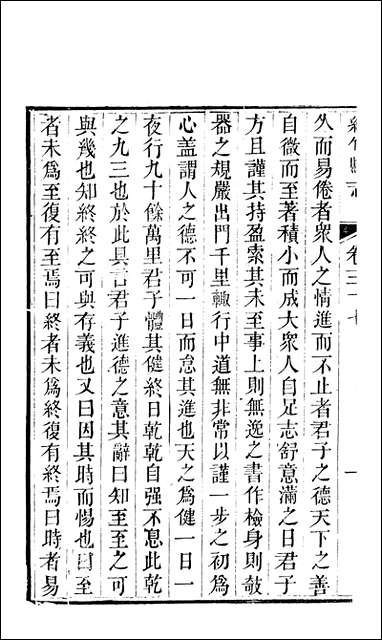 綿竹縣志
卷三十七
久而易倦者衆人之情進而不止者君子之德天下之善
自微而至著積小而成大衆人自足志舒意滿之日君子
方且謹其持盈索其未至事上則無逸之書作檢身則敧
器之規嚴出門千里輙行中道無非常以謹一步之初爲
心盖謂人之德不可一日而怠其進也天之爲健一日一
夜行九十餘萬里君子體其健終日乾乾自强不息此乾
之九三也於此具言君子進德之意其辭曰知至至之可
與幾也知終終之可與存義也又曰因其時而惕也曰至
者未爲至復有至焉曰終者未爲終復有終焉曰時者易